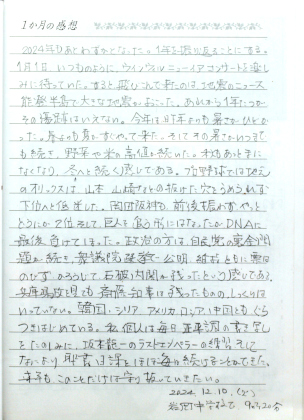 1か月の感想
2024年もあとわずかとなった。1年を振り返ることにする。
1月1日 いつものように、ウィンウィルニューイヤコンサートを楽し
みに待っていた。すると飛びこんで来たのは、地震のニュース
能登半島で大きな地震がおこった。あれから1年たつが
その復興はいえない。今年は昨年よりも暑さがひどか
った。春よりも夏がすぐやって来た。そしてその暑さがいつまで
も続き、野菜や米の高値が続いた。秋もあっとまに
なくなり、冬へと続く感じである。プロ野球では
のオリックスは 山本 山﨑などの抜けた穴をうめられず
下位へと低迷した。阪神も 前後振わずやっと
とうにか2位そして、巨人を負う形にはなったがDNAに
最後負けてしまった。政治の方は、自民党の裏金問題
が続き、衆議院選挙で公明 維新ともに票は
のびず、のうそうして、石破内閣が残ったという感じである
兵庫県政と見ても 斎藤知事は残ったものの、しっくりは
いっていない。韓国、シリア、アメリカ、ロシア、中国ともぐら
つきはじめている。私個人は毎日 の書き写し
をたのしみに、坂本龍一のラストエンペラーの練習 そして
なにより 聖書 ほぼ毎日続けることができた。
来年も このことだけは守り抜いていきたい。
2024. 12. 10. (火)
9:20分